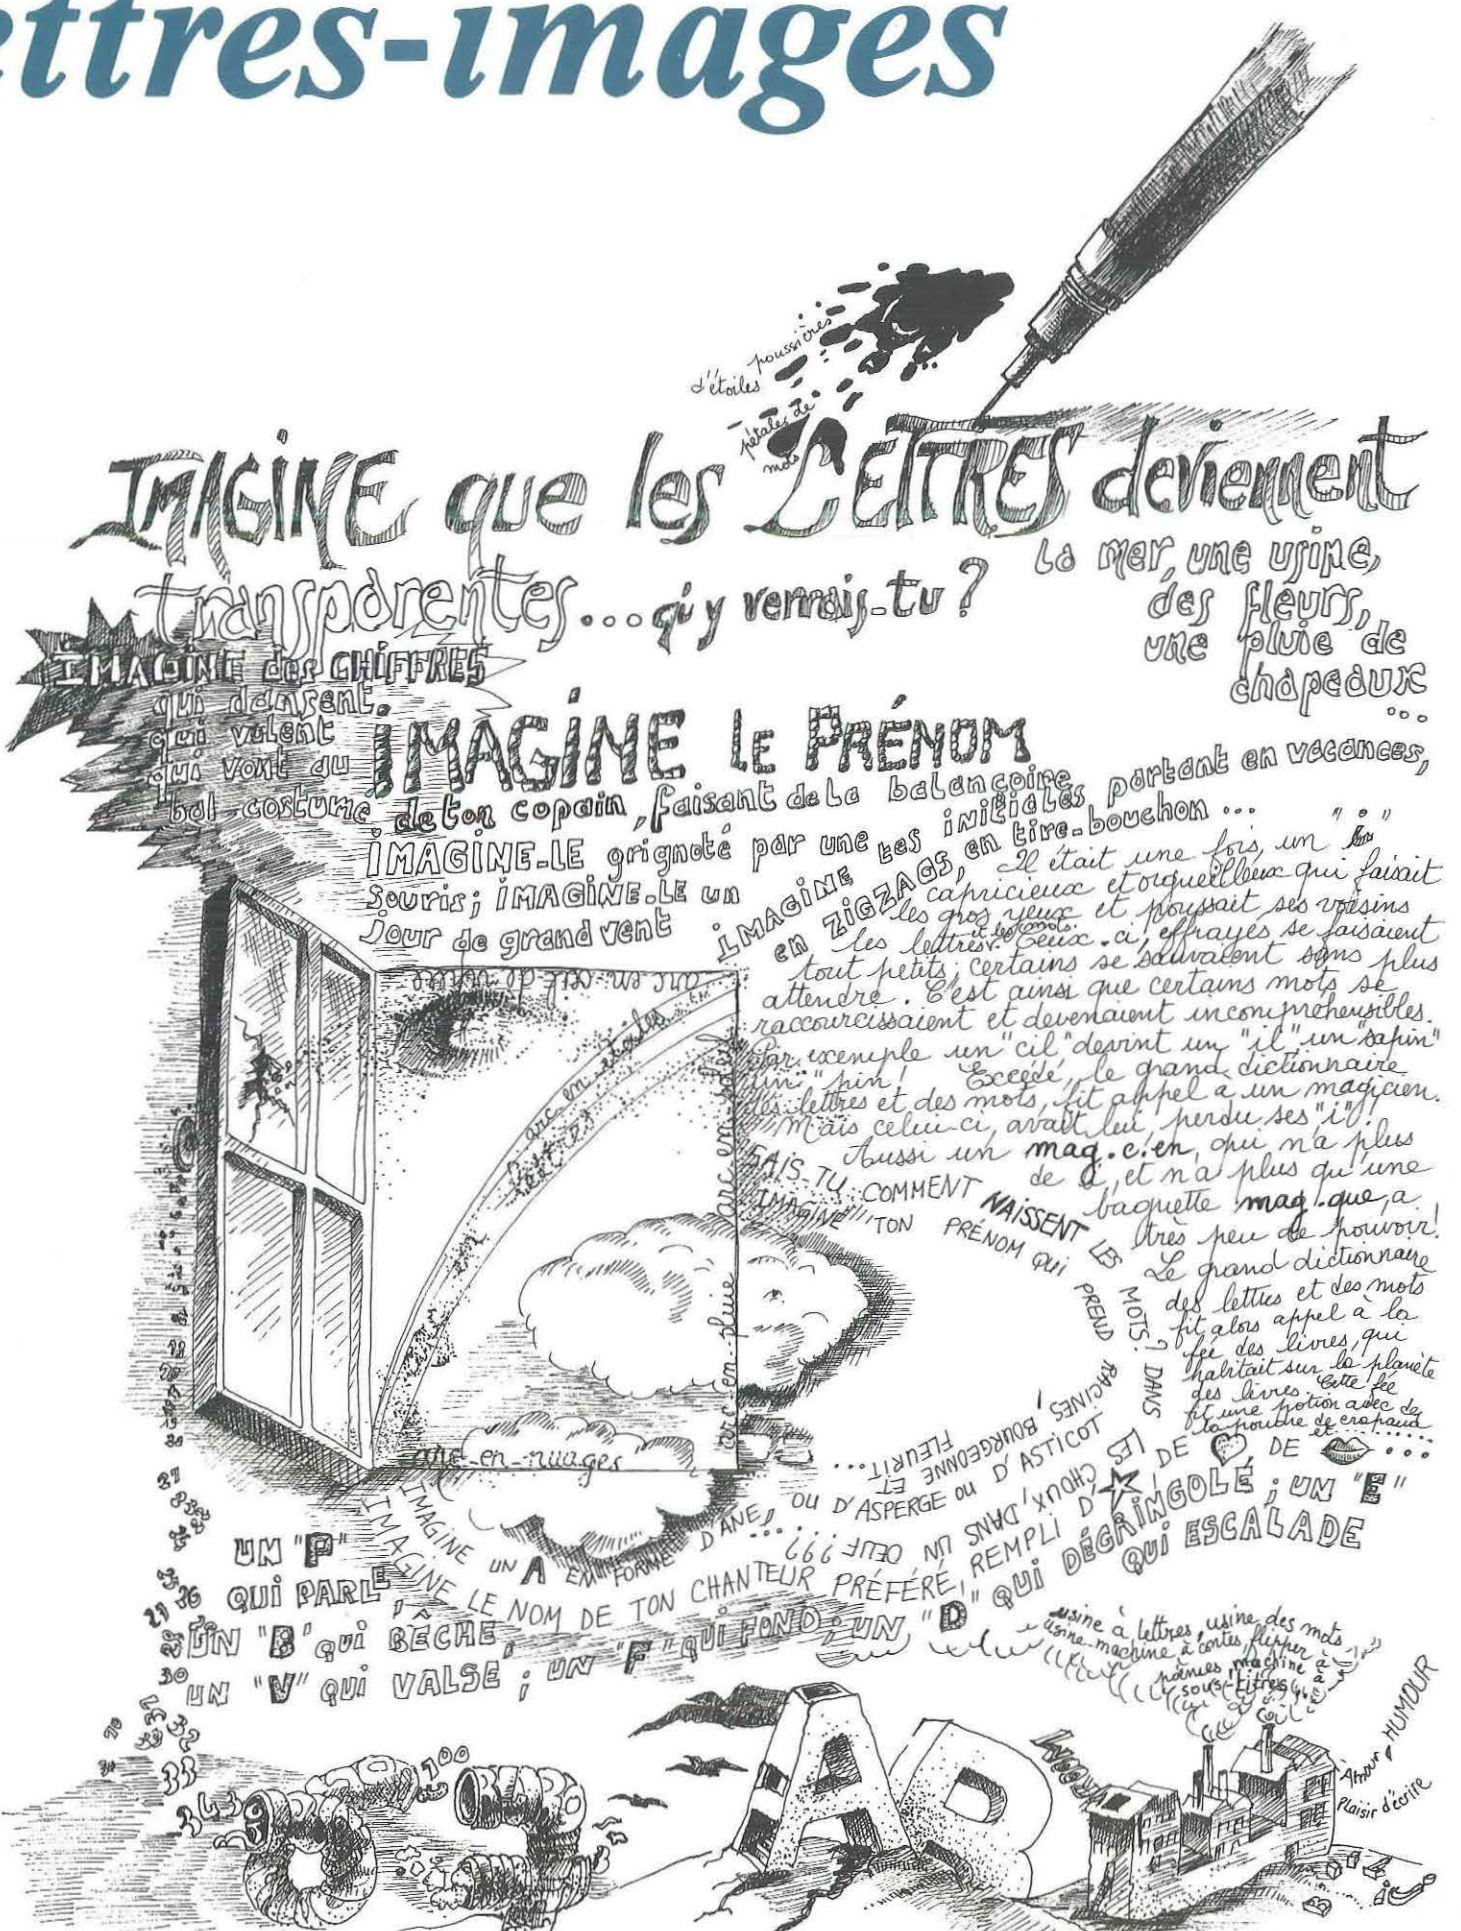 ettres-images
poussières
d'étoiles
pétales de
mots
IMAGINE que les LETTRES deviennent
transparentes... qu'y verrais-tu ?
La mer, une usine,
des fleurs,
une pluie de
chapeaux
...
IMAGINE des CHIFFRES
qui dansent
qui valent
qui vont au
bal costumé
IMAGINE LE PRÉNOM
de ton copain, faisant de la balançoire
IMAGINE-LE grignoté par une
souris; IMAGINE-LE un
jour de grand vent
IMAGINE tes initiales partant en vacances,
en ZIGZAGS, en tire-bouchon ...
Il était une fois, un "i"
capricieux et orgueilleux qui faisait
les gros yeux et poussait ses voisins
les lettres et les mots. Ceux-ci, effrayés se faisaient
tout petits; certains se sauvaient sans plus
attendre. C'est ainsi que certains mots se
raccourcissaient et devenaient incompréhensibles.
Par exemple un "cil" devint un "il" un "sapin"
un "pin"! Excédé, le grand dictionnaire
des lettres et des mots, fit appel à un magicien.
Mais celui-ci, avait lui, perdu ses "i".
Aussi un mag.c.en, qui n'a plus
de i, et n'a plus qu'une
baguette mag.que, a
très peu de pouvoir!
Le grand dictionnaire
des lettres et des mots
fit alors appel à la
fée des livres, qui
habitait sur la planète
des livres. Cette fée
fit une potion avec de
la poudre de crapaud
et......
arc en ciel de
arc en étoiles
arc en lettres
arc en soleil
arc-en-pluie
arc-en-nuages
SAIS-TU COMMENT NAISSENT LES MOTS? DANS
LES CHOUX, DANS UN OEUF ???
IMAGINE TON PRÉNOM QUI PREND RACINES
BOURGEONNE ET
FLEURIT...
IMAGINE UN A EN FORME D'ANE, OU D'ASPERGE OU D'ASTICOT
...
IMAGINE LE NOM DE TON CHANTEUR PRÉFÉRÉ, REMPLI D' DE DE ...
UN "P"
QUI PARLE,
UN "B" qui BÊCHE,
UN "V" QUI VALSE ; UN "F" QUI FOND ; UN "D" QUI DÉGRINGOLÉ ; UN "E"
QUI ESCALADE
usine à lettres, usine des mots
usine-machine à contes, flipper à
poèmes, machine à
sous-titres
27
30
32
33
100
A
B
VROOM
Amour HUMOUR
Plaisir d'écrire